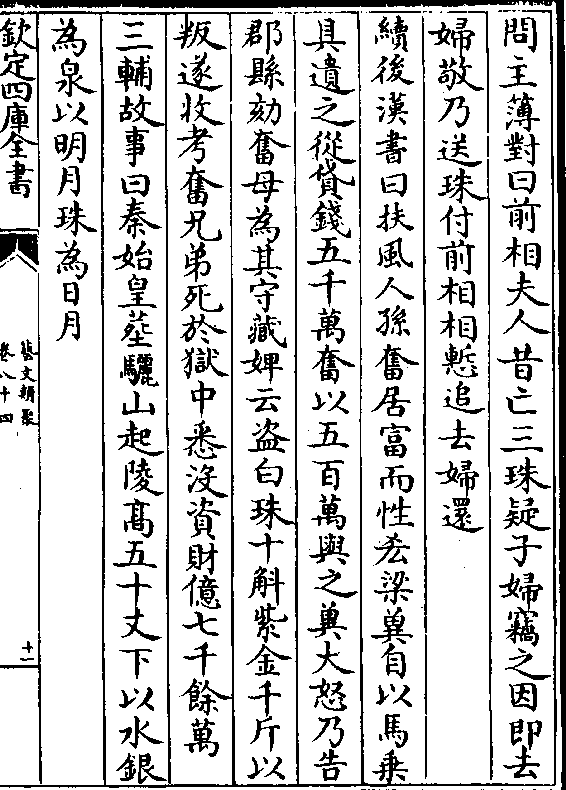 問主簿對曰前相夫人昔亡三珠疑子婦竊之因即去
婦敬乃送珠付前相相慙追去婦還
續後漢書曰扶風人孫奮居富而性𠫤梁兾自以馬乗
具遺之從貸錢五千萬奮以五百萬與之兾大怒乃告
郡縣劾奮母為其守藏婢云盗白珠十斛紫金千斤以
叛遂收考奮兄弟死於獄中悉没資財億七千餘萬
三輔故事曰秦始皇塟驪山起陵髙五十丈下以水銀
為泉以明月珠為日月
欽定四庫全書
藝文類聚
卷八十四
十一